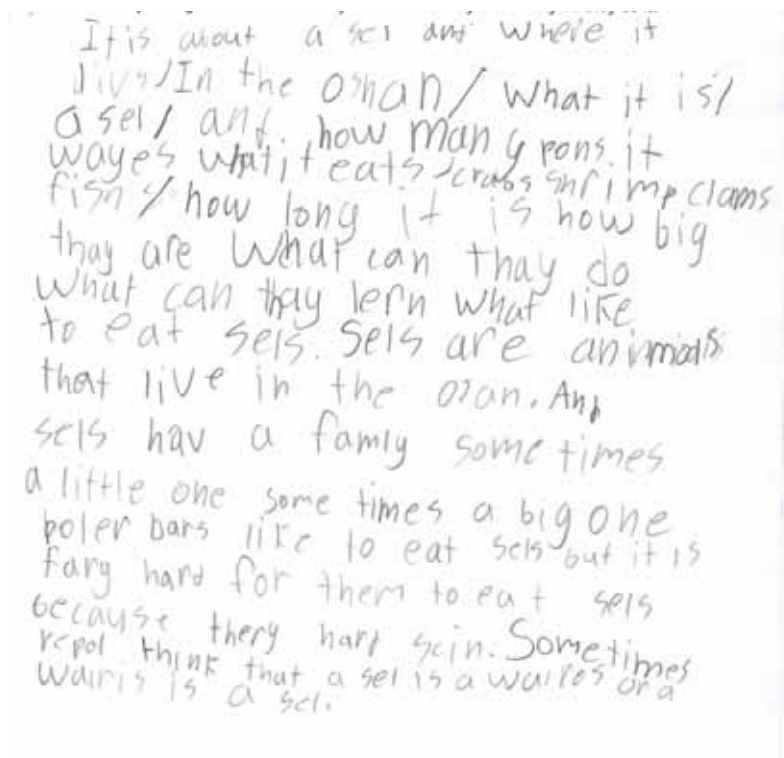 It is about a sel and where it
livs/In the oshan/ What it is/
a sel/ and how many pons it
wayes what it eats/crabs shrimp clams
fish/ how long it is how big
thay are What can thay do
What can thay lern what like
to eat sels. Sels are animals
that live in the osan. And
sels hav a famly some times
a little one some times a big one
poler bars like to eat sels but it is
fary hard for them to eat sels
because thery hard scin. Sometimes
repol think that a sel is a walros or a
walris is a sel.